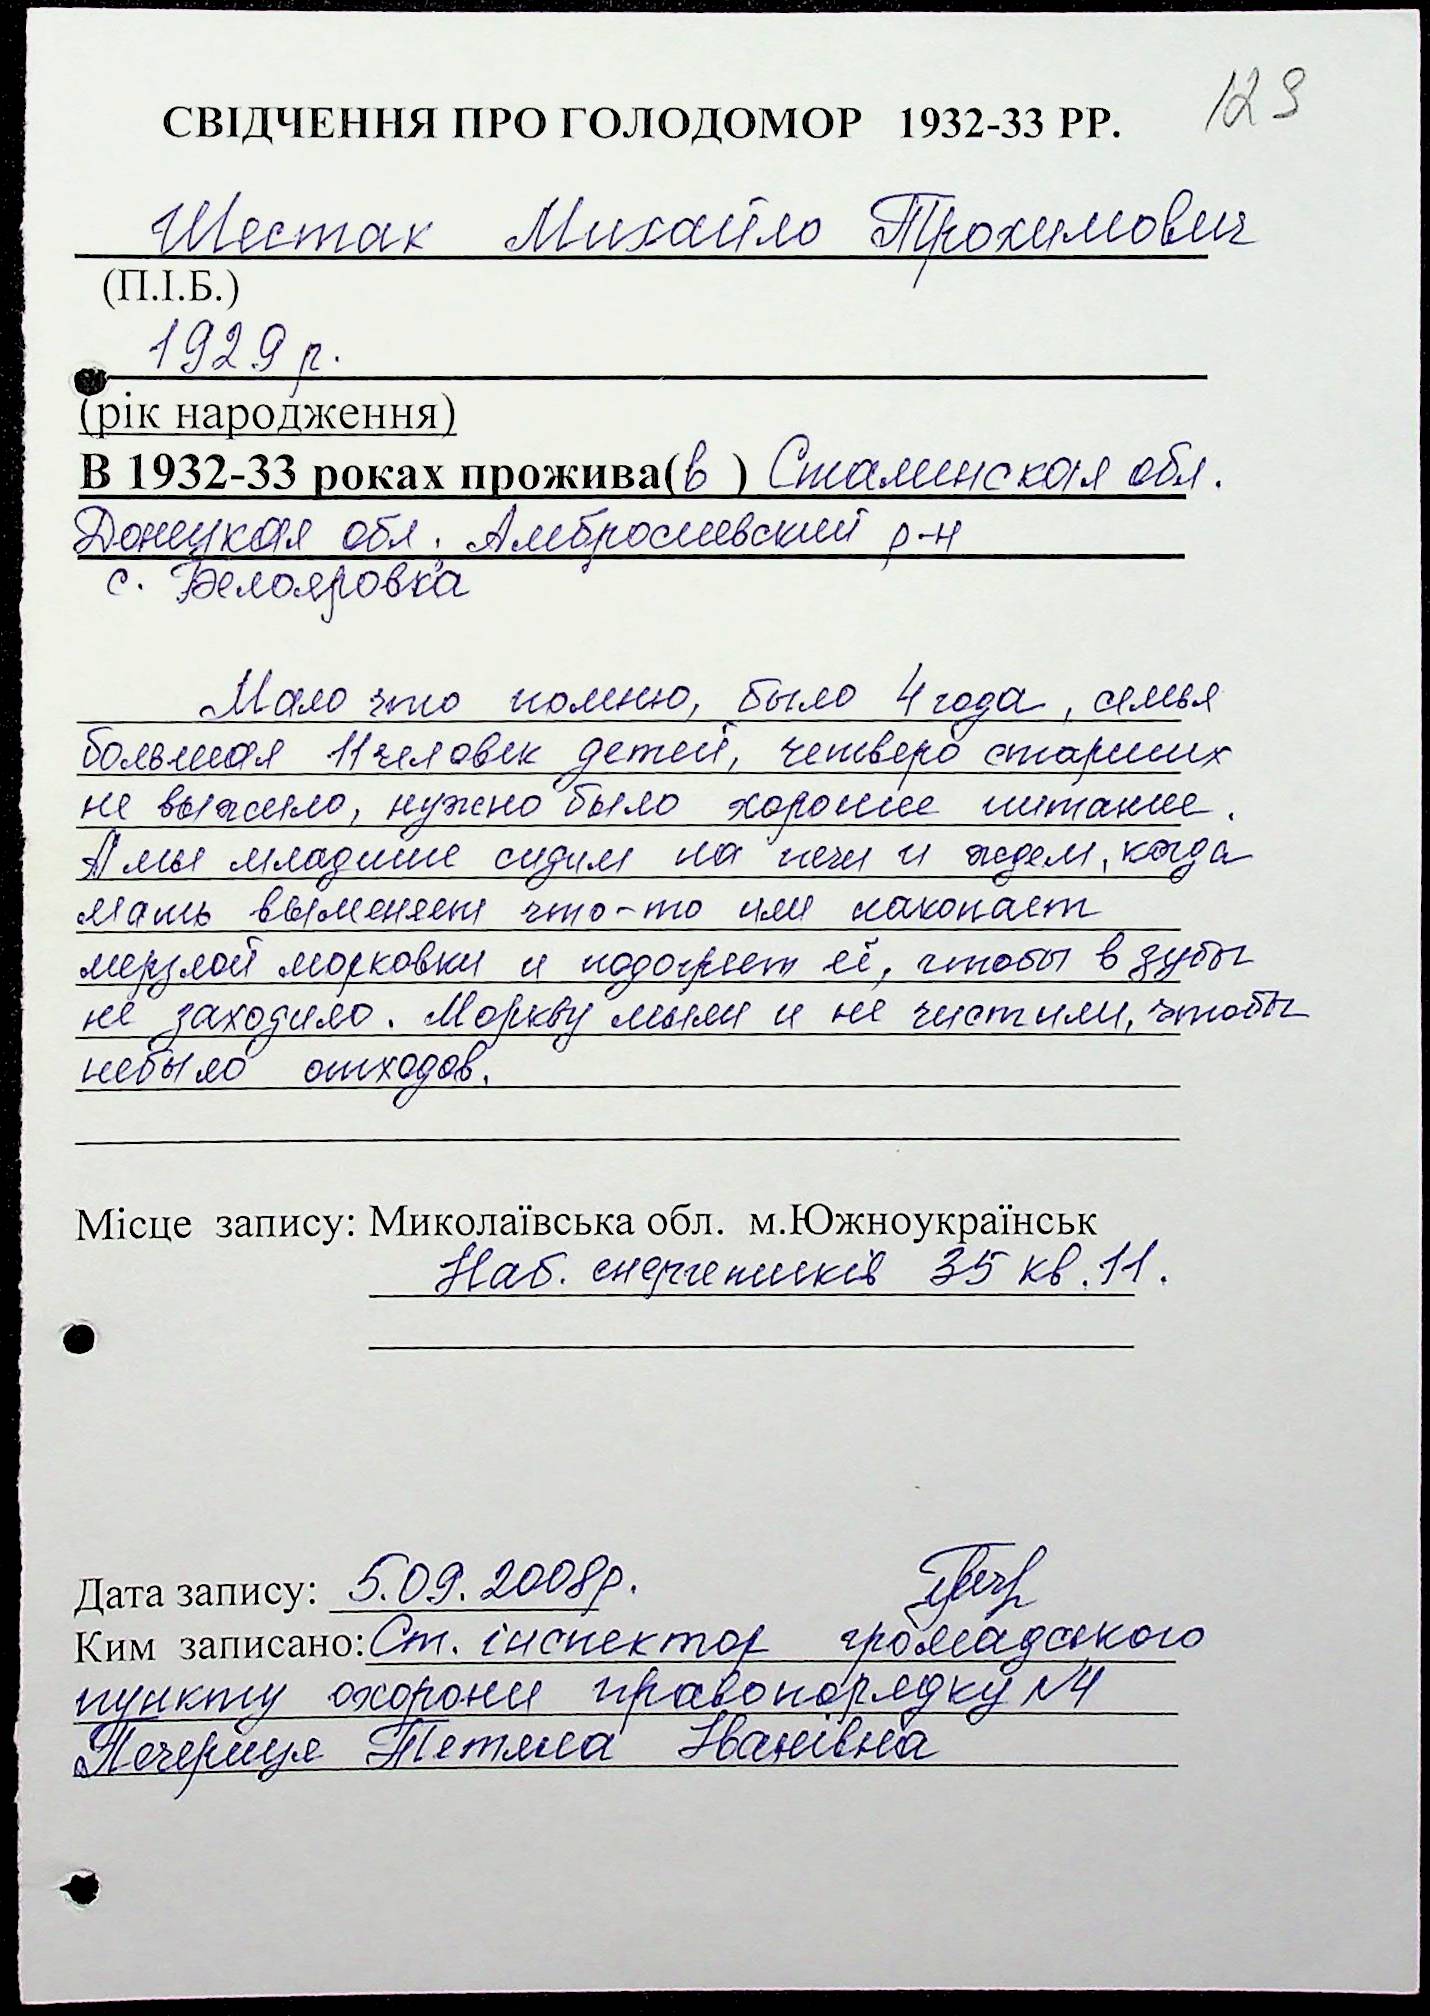 123
СВІДЧЕННЯ ПРО ГОЛОДОМОР 1932-33 РР.
Шестак Михайло Трохимович
(П.І.Б.)
1929 р.
(рік народження)
В 1932-33 роках прожива(в ) Сталинская обл.
Донецкая обл, Амбросиевский р-н
с. Белояровка
Мало что помню, было 4 года, семья
большая 11 человек детей, четверо старших
не выжило, нужно было хорошее питание.
А мы младшие сидим на печи и ждем, когда
мать выменяет что-то или накопает
мерзлой морковки и подогреет её, чтобы в зубы
не заходило. Моркву мыли и не чистили, чтобы
небыло отходов.
Місце запису: Миколаївська обл. м.Южноукраїнськ
Наб. енергетиків 35 кв.11.
Дата запису: 5.09.2008р.
Ким записано: Ст. інспектор громадського
пункту охорони правопорядку №4
Печериця Тетяна Іванівна